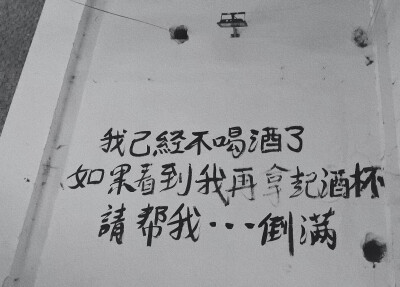 我己経不喝酒了
如果看到我再拿起酒杯
請帮我…倒满